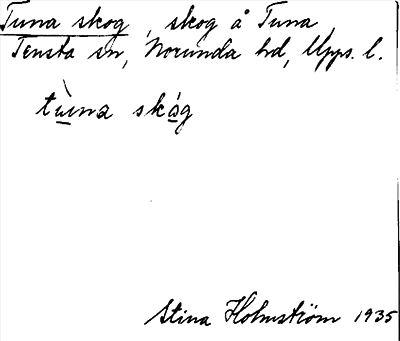 Tuna skog, skog å Tuna
Tensta sn, Norunda hd, Upps. l.
tùna skág
Stina Holmström 1935